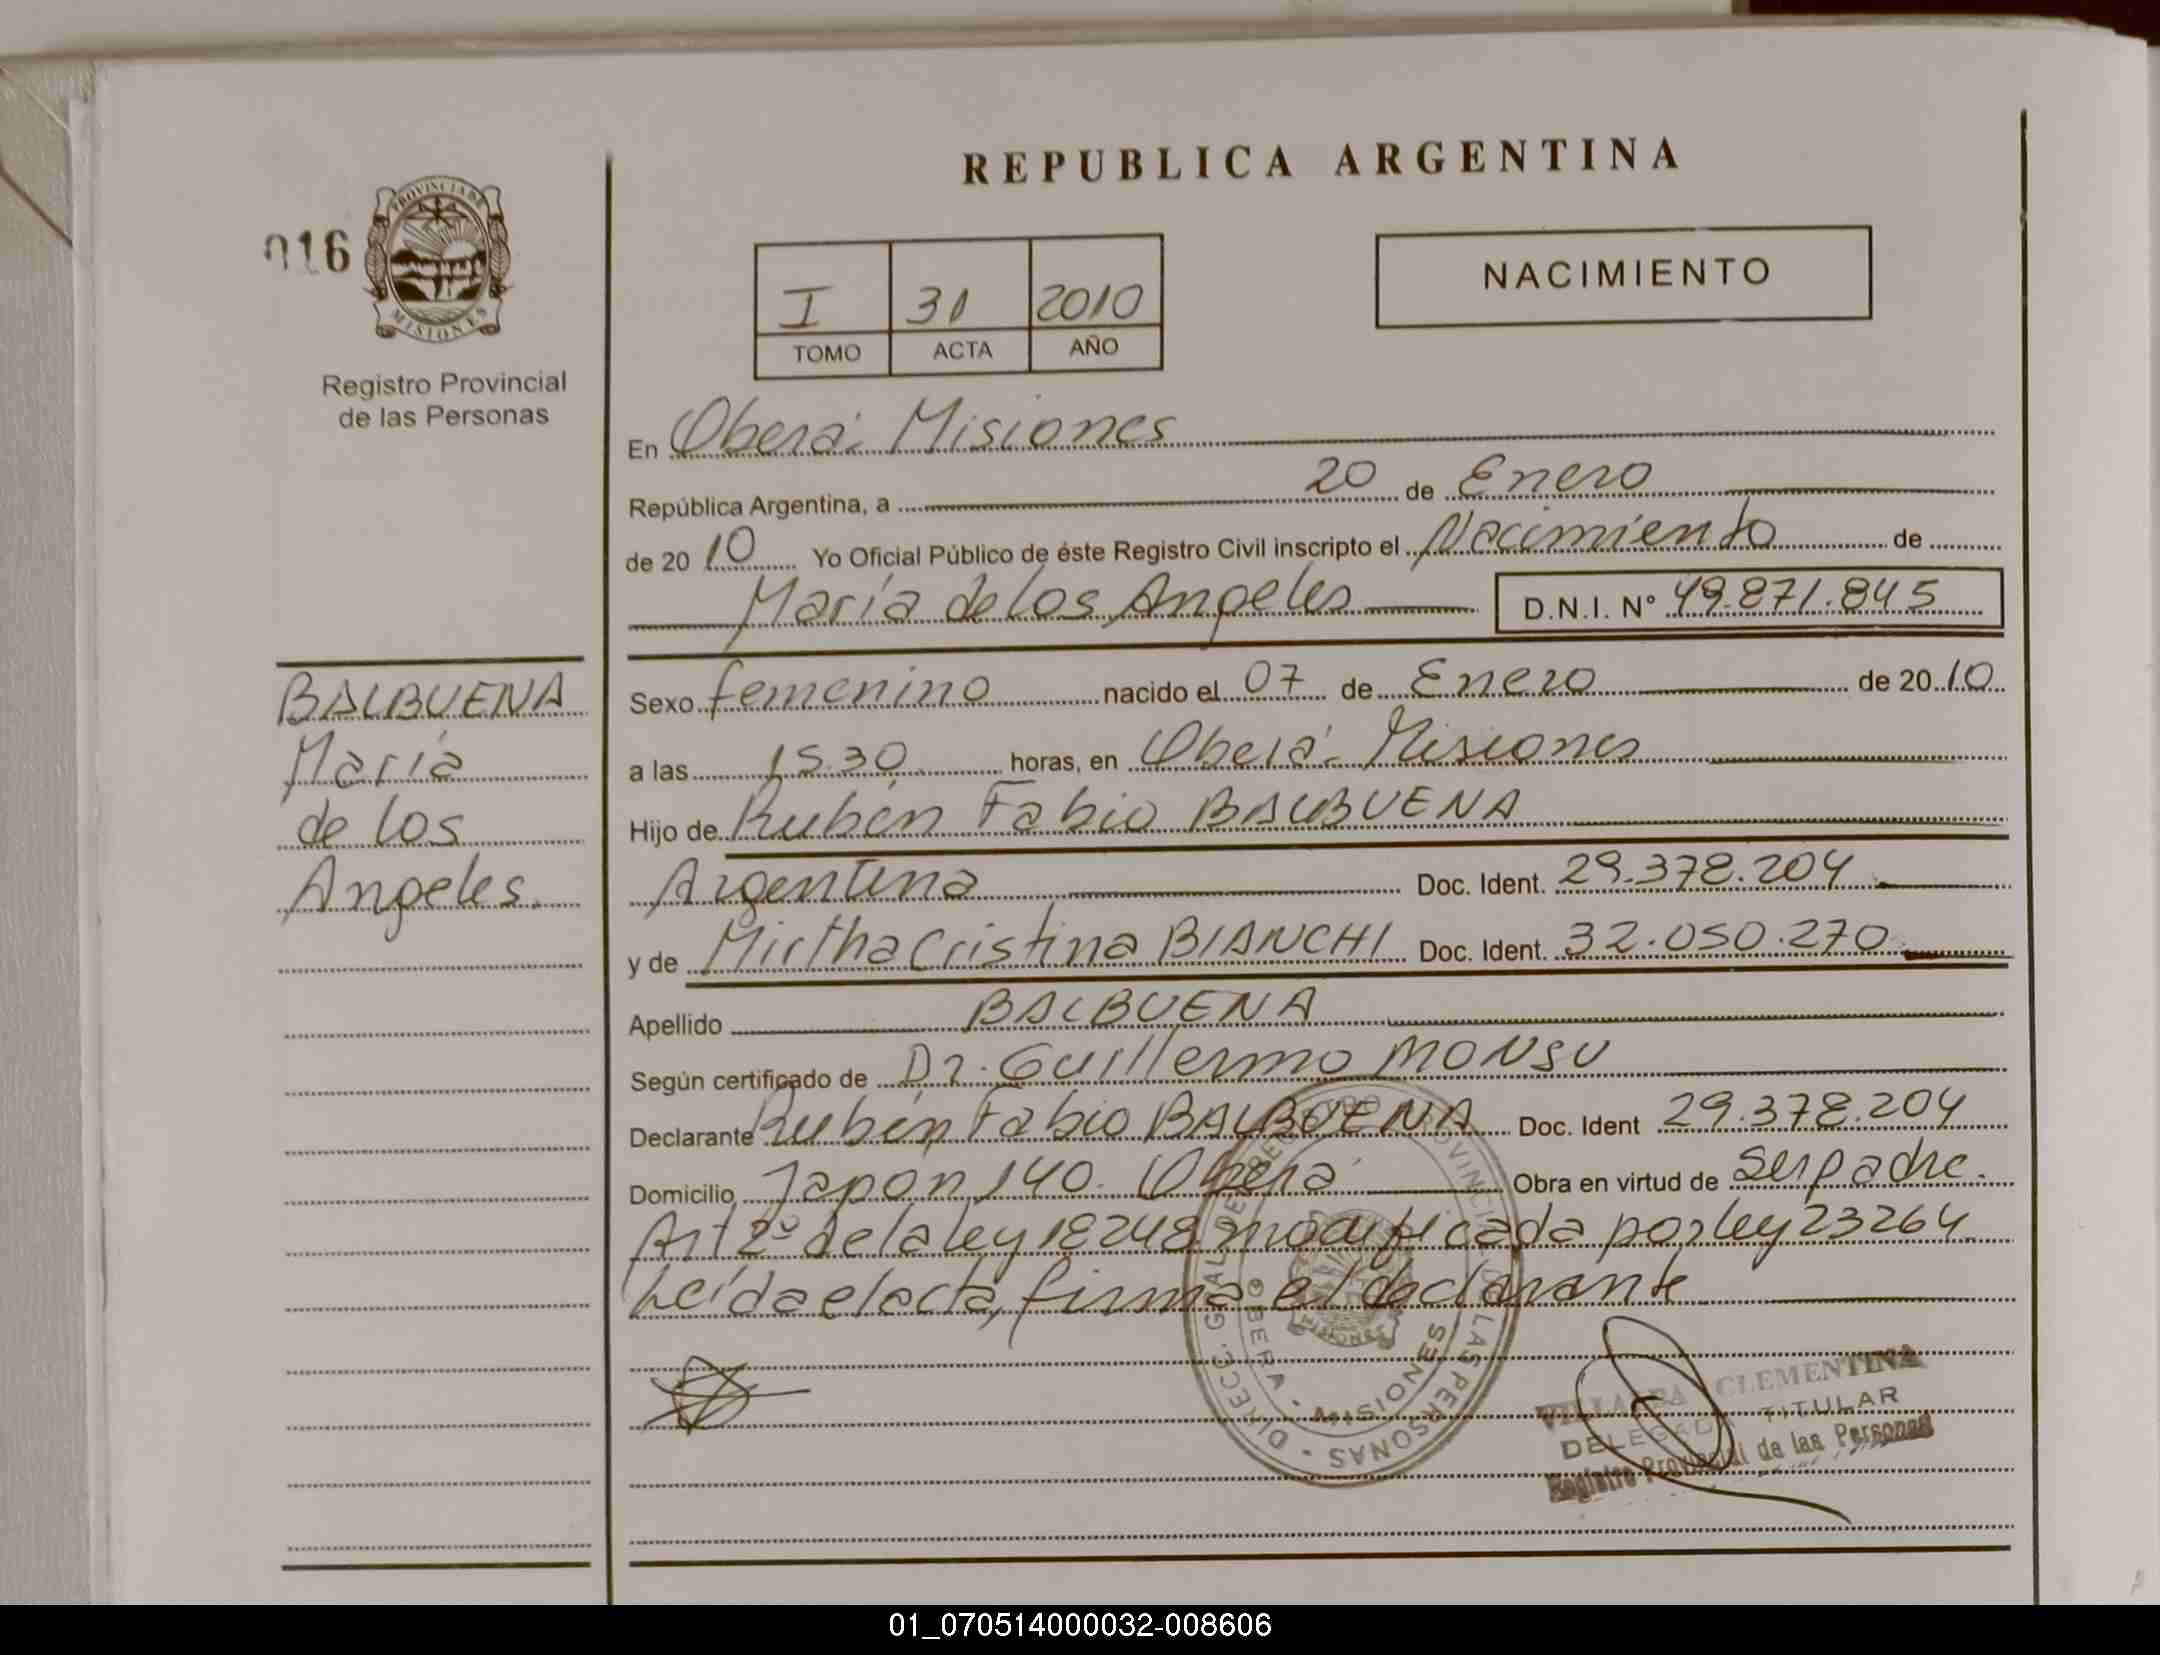 REPUBLICA ARGENTINA
016
PROVINCIA DE
MISIONES
Registro Provincial
de las Personas
NACIMIENTO
I 31 2010
TOMO ACTA AÑO
En Oberá. Misiones
República Argentina, a 20 de Enero
de 2010 Yo Oficial Público de éste Registro Civil inscripto el Nacimiento de
María de los Angeles D.N.I. Nº 49.871.845
BALBUENA
María
de los
Angeles.
Sexo femenino nacido el 07 de Enero de 2010
a las 15.30 horas, en Oberá. Misiones
Hijo de Rubén Fabio BALBUENA
Argentina Doc. Ident. 29.378.204
y de Mirtha Cristina BIANCHI Doc. Ident. 32.050.270
Apellido BALBUENA
Según certificado de Dr. Guillermo MONSU
Declarante Rubén Fabio BALBUENA Doc. Ident 29.378.204
Domicilio Japón 140. Oberá Obra en virtud de Ser padre.
Art 2º de la ley 18248 modificada por ley 23264
Leída el acta, firma el declarante
DIRECC. GRAL DEL REGISTRO PROVINCIAL DE LAS PERSONAS
OBERA - MISIONES
MISIONES
CLEMENTINA
DELEGADA TITULAR
Registro Provincial de las Personas
01_070514000032-008606